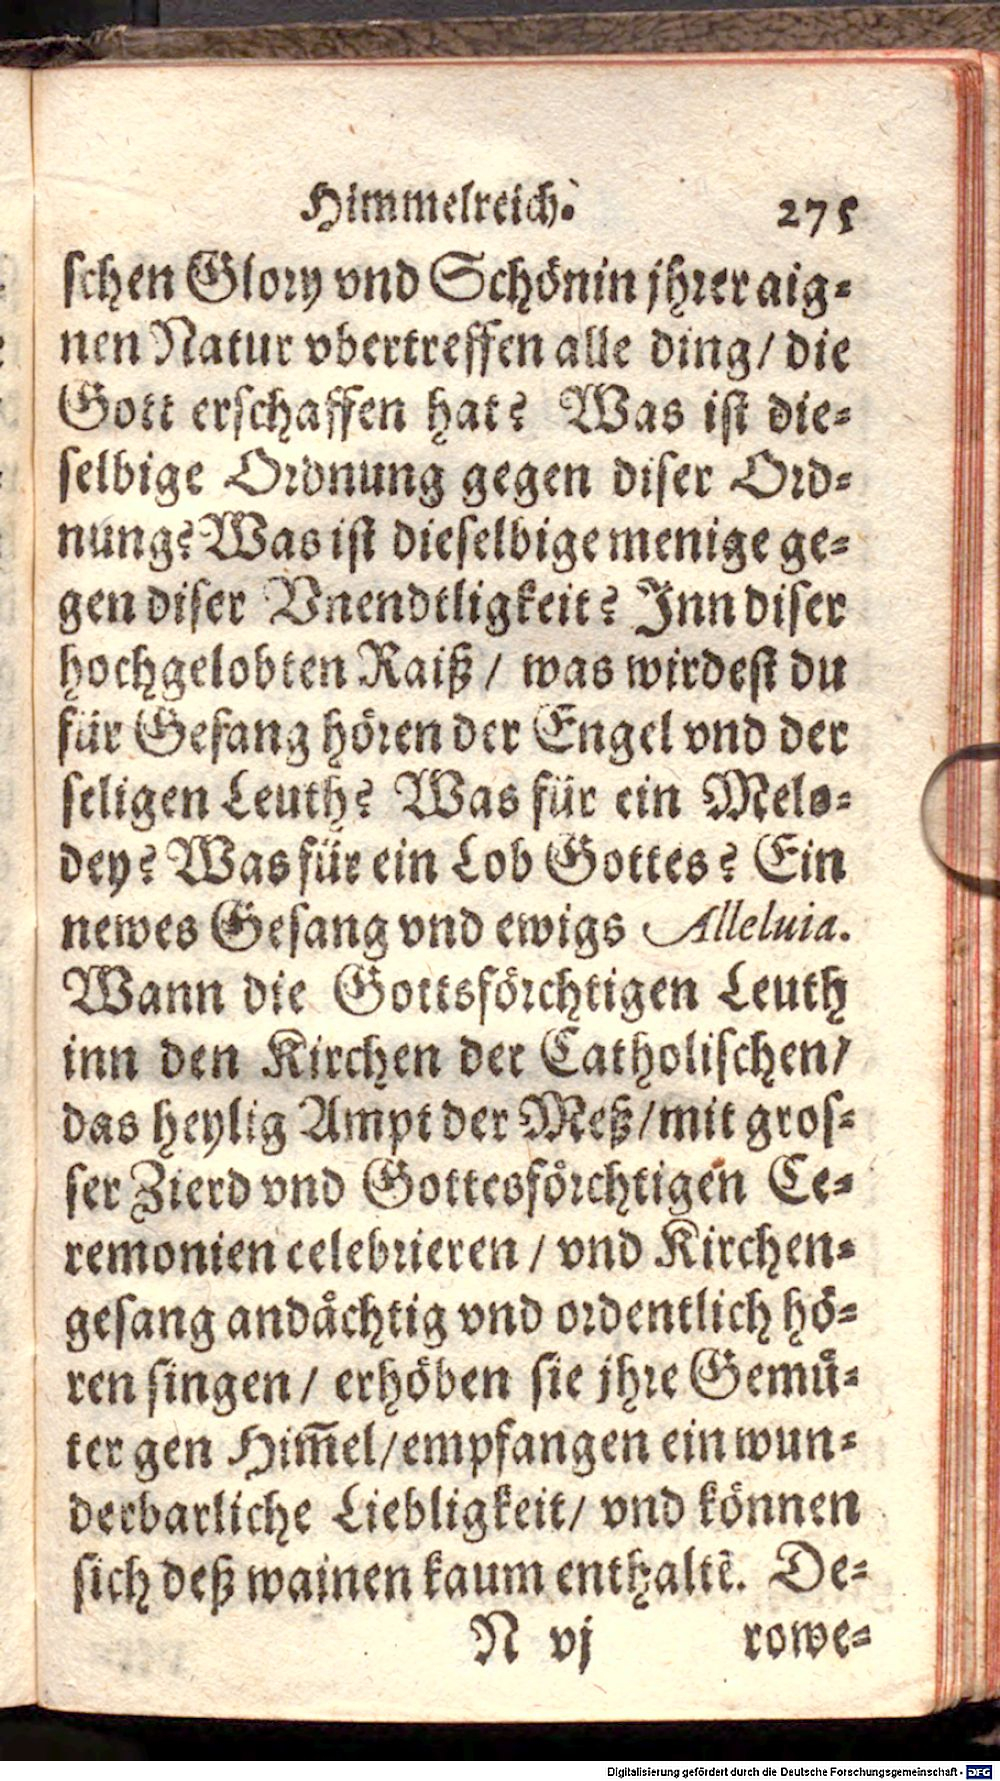 Himmelreich. 275
schen Glory vnd Schönin jhrer aig-
nen Natur vbertreffen alle ding / die
Gott erschaffen hat? Was ist die-
selbige Ordnung gegen diser Ord-
nung? Was ist dieselbige menige ge-
gen diser Vnendtligkeit? Inn diser
hochgelobten Raiß / was wirdest du
für Gesang hören der Engel vnd der
seligen Leuth? Was für ein Melo-
dey? Was für ein Lob Gottes? Ein
newes Gesang vnd ewigs Alleluia.
Wann die Gottsförchtigen Leuth
inn den Kirchen der Catholischen /
das heylig Ampt der Meß / mit gros-
ser Zierd vnd Gottesförchtigen Ce-
remonien celebrieren / vnd Kirchen-
gesang andåchtig vnd ordentlich hö-
ren singen / erhöben sie jhre Gemů-
ter gen Him̄el / empfangen ein wun-
derbarliche Liebligkeit / vnd können
sich deß wainen kaum enthaltẽ. De-
N vj rowe-
Digitalisierung gefördert durch die Deutsche Forschungsgemeinschaft - DFG